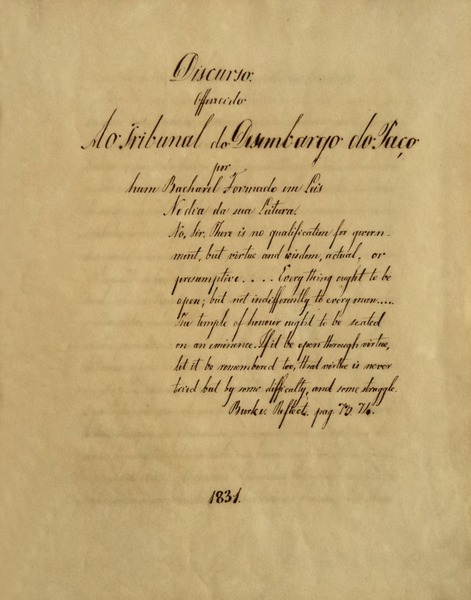 Discurso.
Offerecido
Ao Tribunal do Desembargo do Paço
por
hum Bacharel Formado em Leis
No dia da sua Leitura.
No, Sir. There is no qualification for govern-
ment, but virtue and wisdom, actual, or
presumptive.... Everything ought to be
open; but not indifferently to every man.....
The temple of honour ought to be seated
on an eminence. If it be open thorough virtue,
let it be remembered too, that virtue is never
tried but by some difficulty, and some struggle.
Burke. Reflect. pag. 73. 74.
1831.